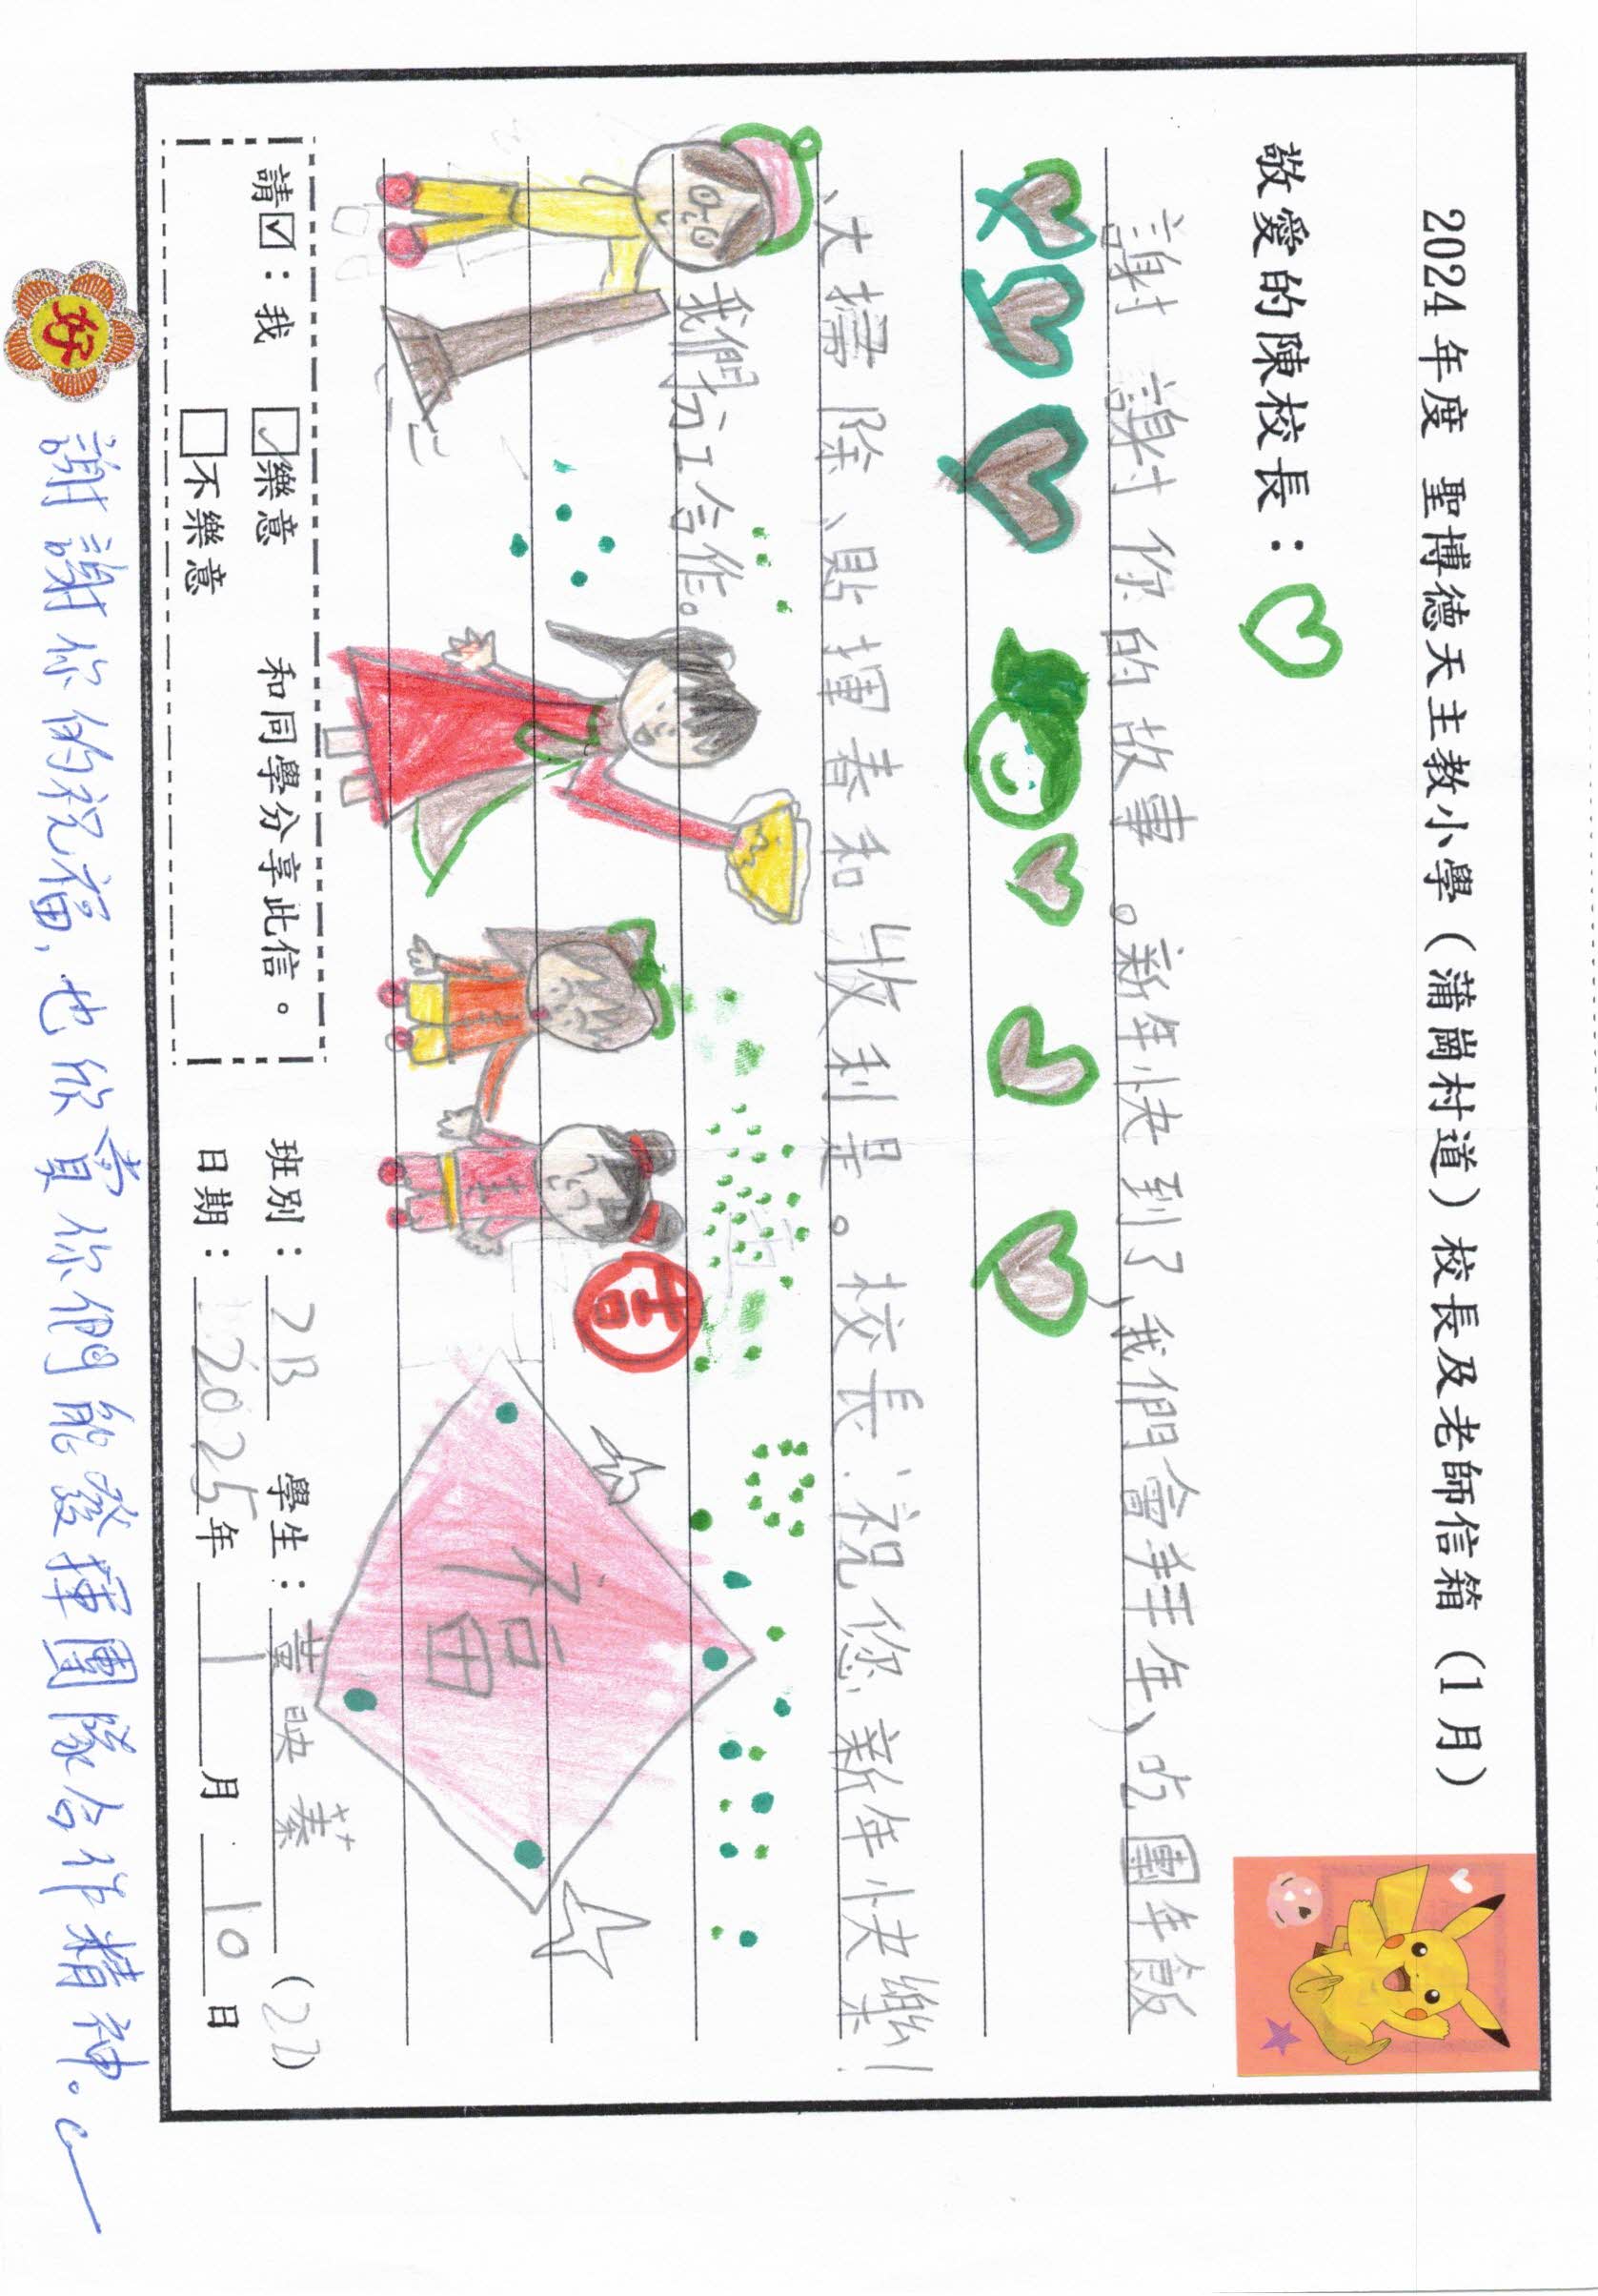 2024 年度 聖博德天主教小學（蒲崗村道）校長及老師信箱（1 月）
敬愛的陳校長：
謝謝你的故事。新年快到了，我們會拜年、吃團年飯
、大掃除、貼揮春和收利是。校長祝您新年快樂！
我們分工合作。
吉
福
請☑：我 ☑樂意 和同學分享此信。
□不樂意
班別：2B 學生：黃映蓁（22）
日期：2025年 1 月 10 日
好
謝謝你的祝福，也欣賞你們能發揮團隊合作精神。